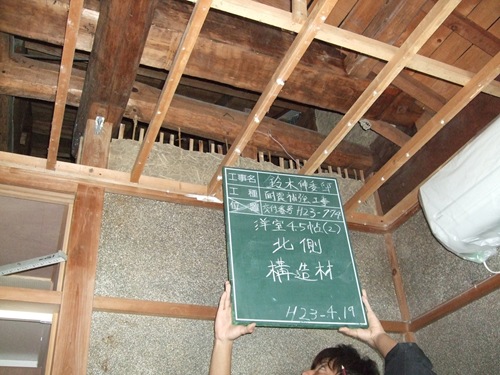 工事名 鈴木伸幸 邸
工種 耐震補強工事
位置 交付番号 H23-774
洋室4.5帖(2)
北側
構造材
H23-4.19